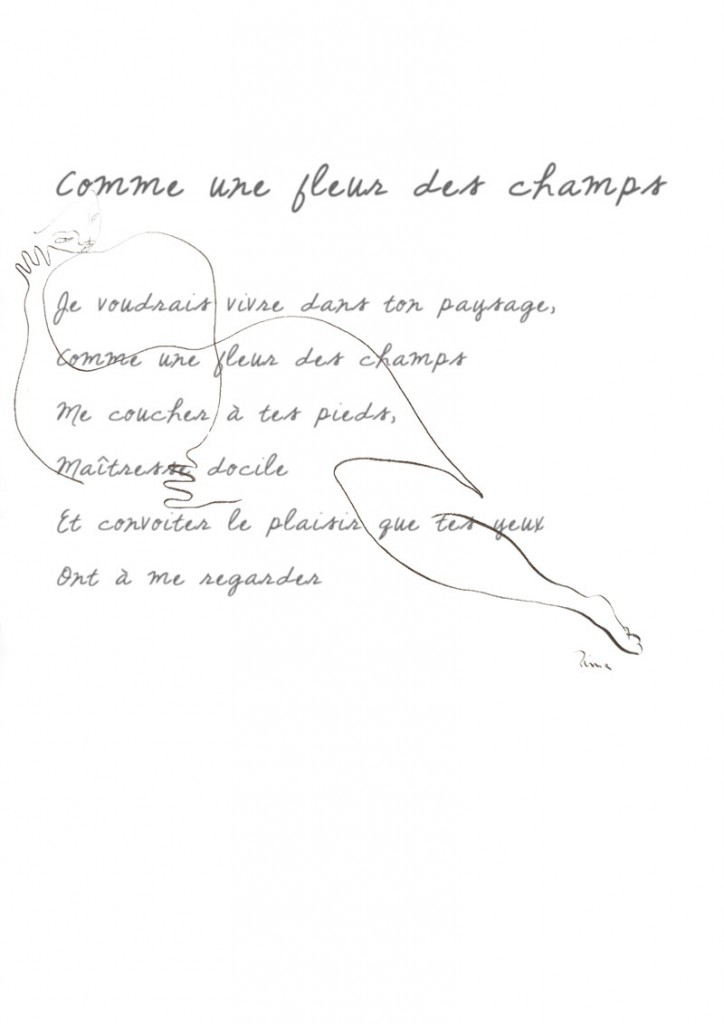 Comme une fleur des champs
Je voudrais vivre dans ton paysage,
Comme une fleur des champs
Me coucher à tes pieds,
Maîtresse docile
Et convoiter le plaisir que tes yeux
Ont à me regarder